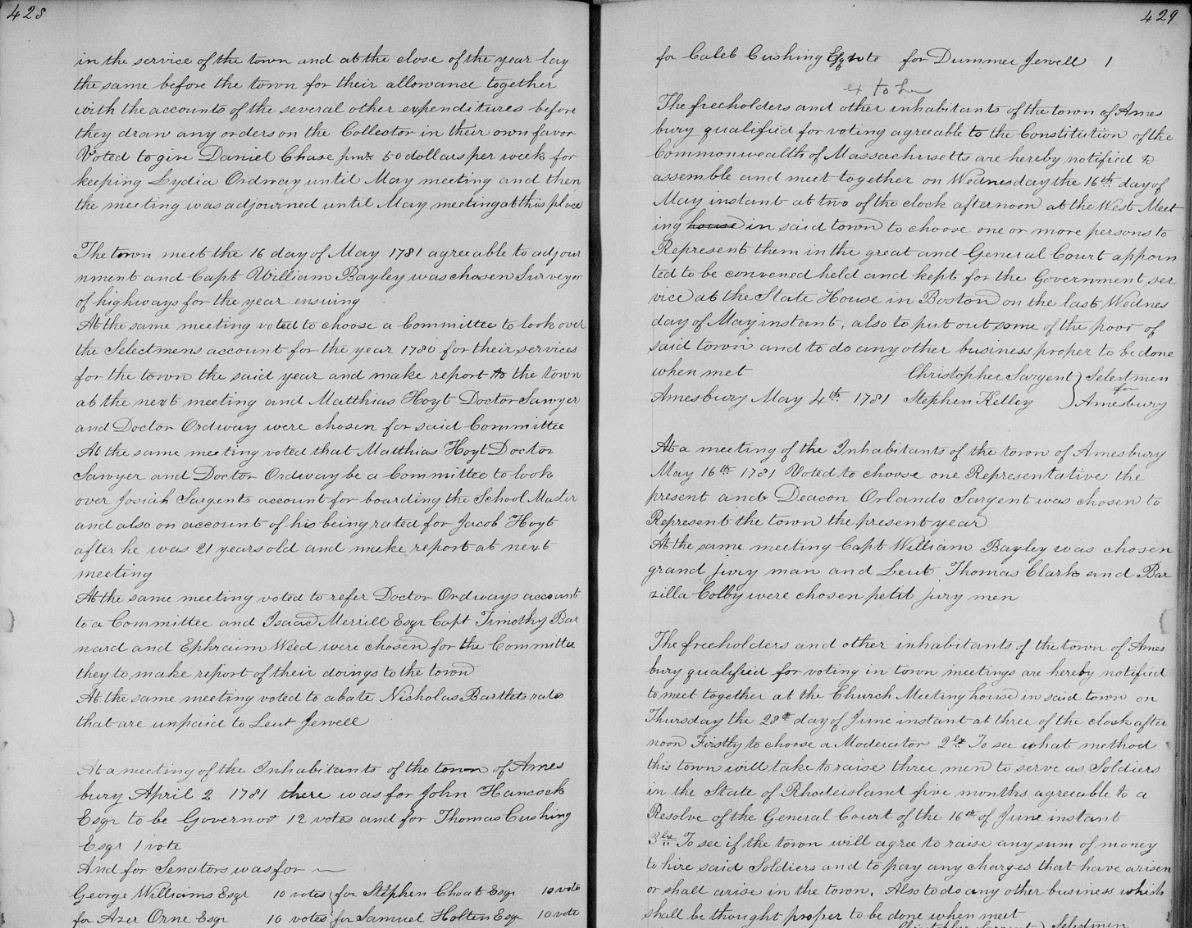 428
in the service of the town and at the close of the year lay
the same before the town for their allowance together
with the accounts of the several other expenditures before
they draw any orders on the Collector in their own favor
Voted to give Daniel Chase 50 dollars per week for
keeping Lydia Ordway until May meeting and then
the meeting was adjourned until May meeting at this place
The town meet the 16 day of May 1781 agreeable to adjour
nment and Capt William Bayley was chosen Surveyor
of highways for the year insuing
At the same meeting voted to choose a Committee to look over
the Selectmens account for the year 1780 for their services
for the town the said year and make report to the town
at the next meeting and Matthias Hoyt Doctor Sawyer
and Doctor Ordway were chosen for said Committee
At the same meeting voted that Matthias Hoyt Doctor
Sawyer and Doctor Ordway be a Committee to look
over Josiah Sargents account for boarding the School Master
and also on account of his being rated for Jacob Hoyt
after he was 21 years old and make report at next
meeting
At the same meeting voted to refer Doctor Ordways account
to a Committee and Isaac Merrill Esqr Capt Timothy Bar
nard and Ephraim Weed were chosen for the Committee
they to make report of their doings to the town
At the same meeting voted to abate Nicholas Bartlets rates
that are unpaid to Leut Jewell
At a meeting of the Inhabitants of the town of Ames
bury April 2 1781 there was for John Hancock
Esqr to be Governor 12 votes and for Thomas Cushing
Esqr 1 vote
And for Senators was for
George Williams Esqr 10 votes for Stephen Choat Esqr 10 vote
for Azer Orne Esqr 10 votes for Samuel Holten Esqr 10 vote
429
for Caleb Cushing for Dummer Jewell 1
The freeholders and other inhabitants of the town of Ames
bury qualified for voting agreable to the Constitution of the
Commonwealth of Massachusetts are hereby notified to
assemble and meet together on Wednesday the 16th day of
May instant at two of the clock afternoon at the West Meet
ing house in said town to choose one or more persons to
Represent them in the great and General Court appoin
ted to be convened held and kept for the Government ser
vice at the State House in Boston on the last Wednes
day of May instant, also to put out some of the poor of
said town and to do any other business proper to be done
when met Christopher Sargent } Selectmen
for
Amesbury May 4th 1781 Stephen Kelley } Amesbury
At a meeting of the Inhabitants of the town of Amesbury
May 16th 1781 Voted to choose one Representative the
present and Deacon Orlando Sargent was chosen to
Represent the town the present year
At the same meeting Capt William Bayley was chosen
grand jury man and Leut Thomas Clark and Bar
zilla Colby were chosen petit jury men
The freeholders and other inhabitants of the town of Ames
bury qualified for voting in town meetings are hereby notified
to meet together at the Church Meeting house in said town on
Thursday the 28th day of June instant at three of the clock after
noon Firstly to choose a Moderator 2ly To see what method
this town will take to raise three men to serve as Soldiers
in the State of Rhodeisland five months agreeable to a
Resolve of the General Court of the 16th of June instant
3ly To see if the town will agree to raise any sum of money
to hire said Soldiers and to pay any charges that have arisen
or shall arise in the town. Also to do any other business which
shall be thought proper to be done when meet
Christopher Sargent } Selectmen